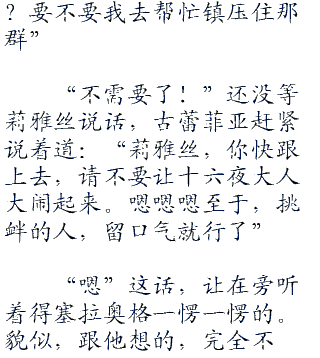 ？要不要我去帮忙镇压住那
群”
“不需要了！”还没等
莉雅丝说话，古蕾菲亚赶紧
说着道：“莉雅丝，你快跟
上去，请不要让十六夜大人
大闹起来。嗯嗯嗯至于，挑
衅的人，留口气就行了”
“嗯”这话，让在旁听
着得塞拉奥格一愣一愣的。
貌似，跟他想的，完全不